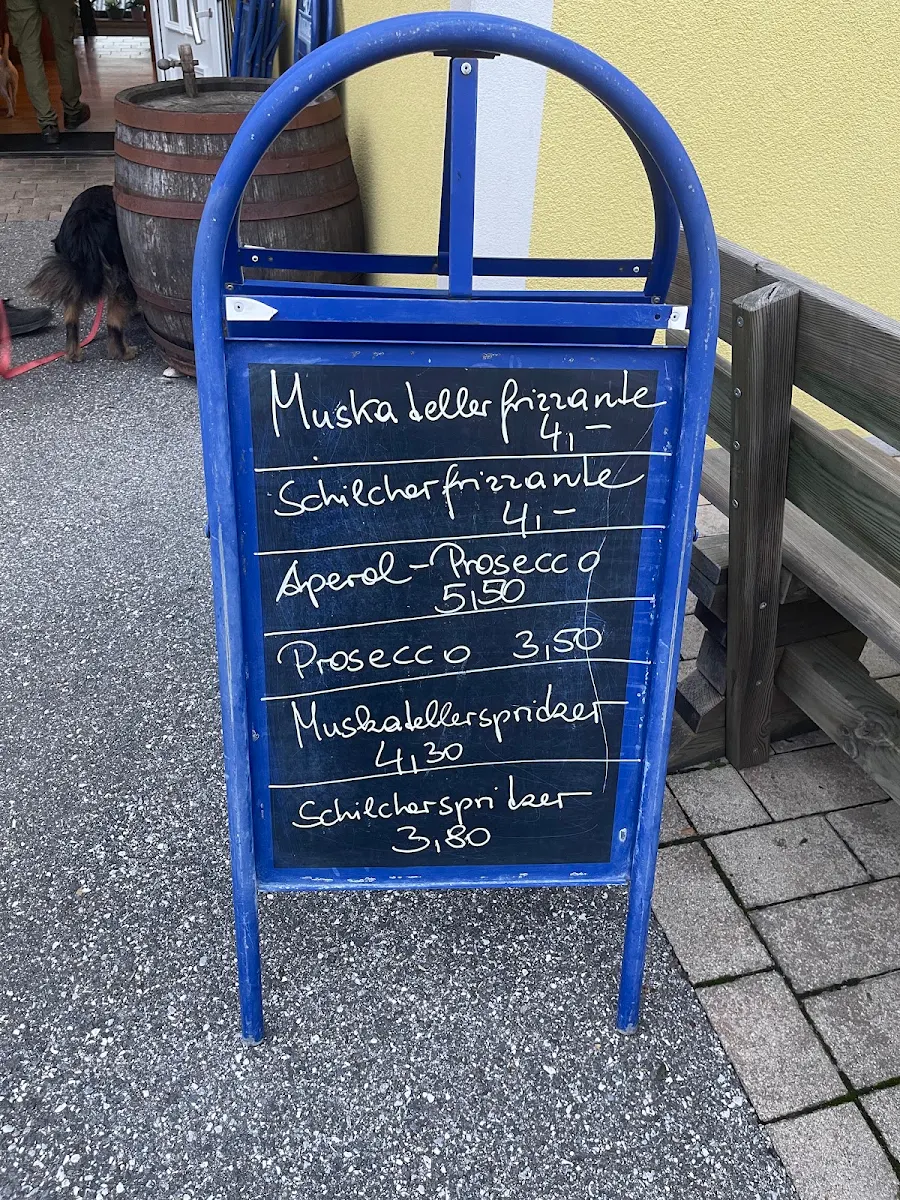 Muskatellerfrizzante
4,-
Schilcherfrizzante
4,-
Aperol-Prosecco
5,50
Prosecco 3,50
Muskatellerspritzer
4,30
Schilcherspritzer
3,80